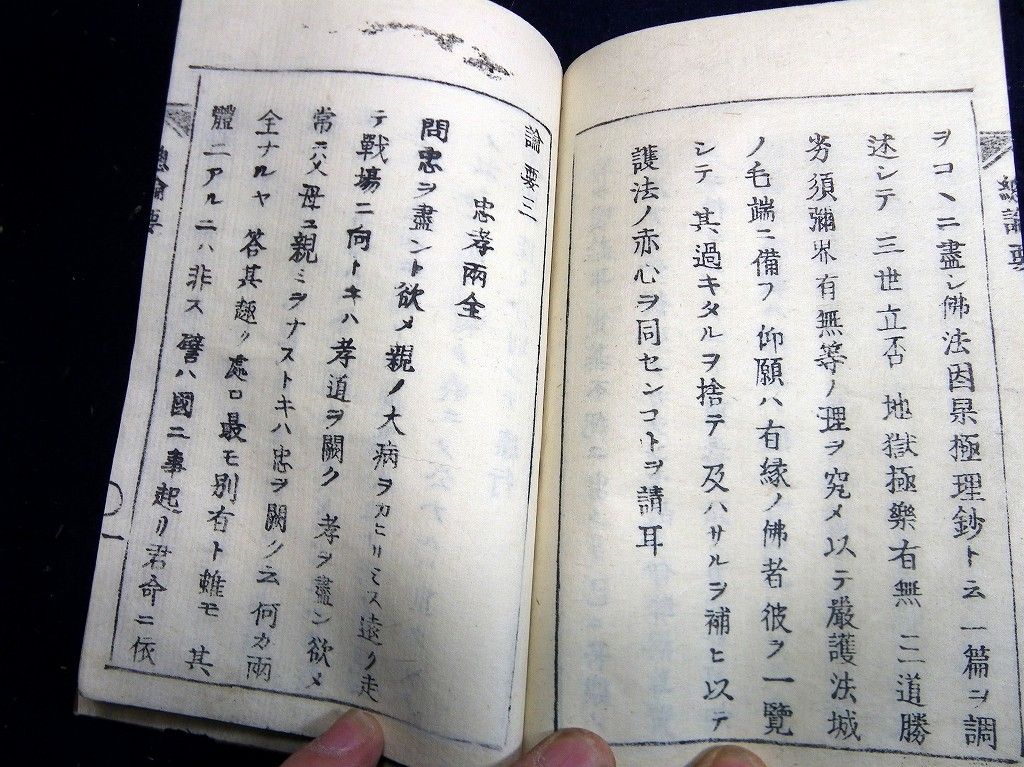 總論要
ヲコヽニ盡シ佛法因果極理鈔ト云一篇ヲ調
述シテ 三世立否 地獄極樂有無 二道勝
劣須彌界有無等ノ理ヲ究メ以テ嚴護法城
ノ毛端ニ備フ 仰願ハ有縁ノ佛者彼ヲ一覽
シテ 其過キタルヲ捨テ 及ハサルヲ補ヒ以テ
護法ノ赤心ヲ同センコトヲ請耳
論要三
忠孝兩全
問忠ヲ盡ント欲メ親ノ大病ヲカヒリミス遠ク走
テ戰場ニ向トキハ孝道ヲ闕ク 孝ヲ盡ン欲メ
常ニ父母ユ親ミヲナストキハ忠ヲ闕ク云何カ兩
全ナルヤ 答其趣ク處ロ最モ別有ト雖モ 其
體ニアルニハ非ス 譬ハ國ニ事起リ君命ニ依
總論要
一